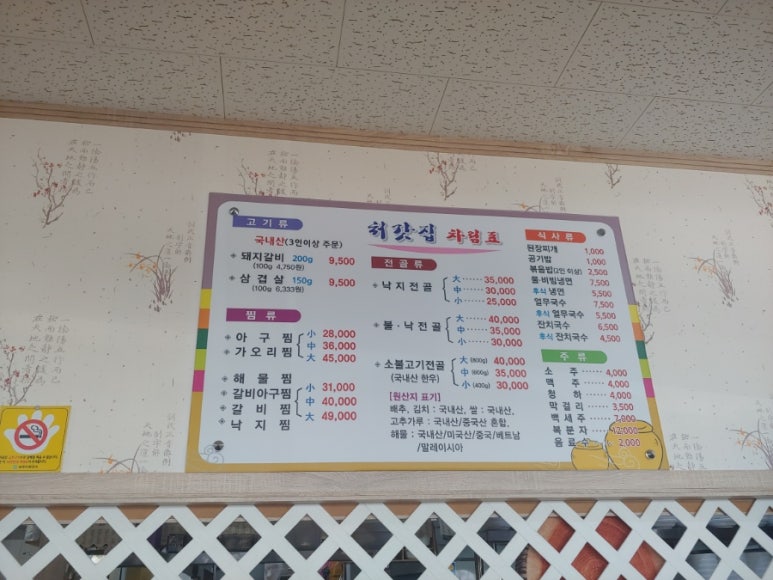 처갓집 차림표
고기류
국내산(3인이상 주문)
돼지갈비 200g 9,500
(100g 4,750원)
삼겹살 150g 9,500
(100g 6,333원)
찜류
아구찜
가오리찜
小 28,000
中 36,000
大 45,000
해물찜
갈비아구찜
갈비찜
낙지찜
小 31,000
中 40,000
大 49,000
전골류
낙지전골
大 35,000
中 30,000
小 25,000
불·낙전골
大 40,000
中 35,000
小 30,000
소불고기전골
(국내산 한우)
大 (800g) 40,000
中 (600g) 35,000
小 (400g) 30,000
[원산지 표기]
배추, 김치 : 국내산, 쌀 : 국내산,
고추가루 : 국내산/중국산 혼합,
해물 : 국내산/미국산/중국/베트남
/말레이시아
식사류
된장찌개 1,000
공기밥 1,000
볶음밥(2인 이상) 2,500
물·비빔냉면 7,500
후식 냉면 5,500
열무국수 7,500
후식 열무국수 5,500
잔치국수 6,500
후식 잔치국수 4,500
주류
소주 4,000
맥주 4,000
청하 4,000
막걸리 3,500
백세주 7,000
복분자 12,000
음료수 2,000